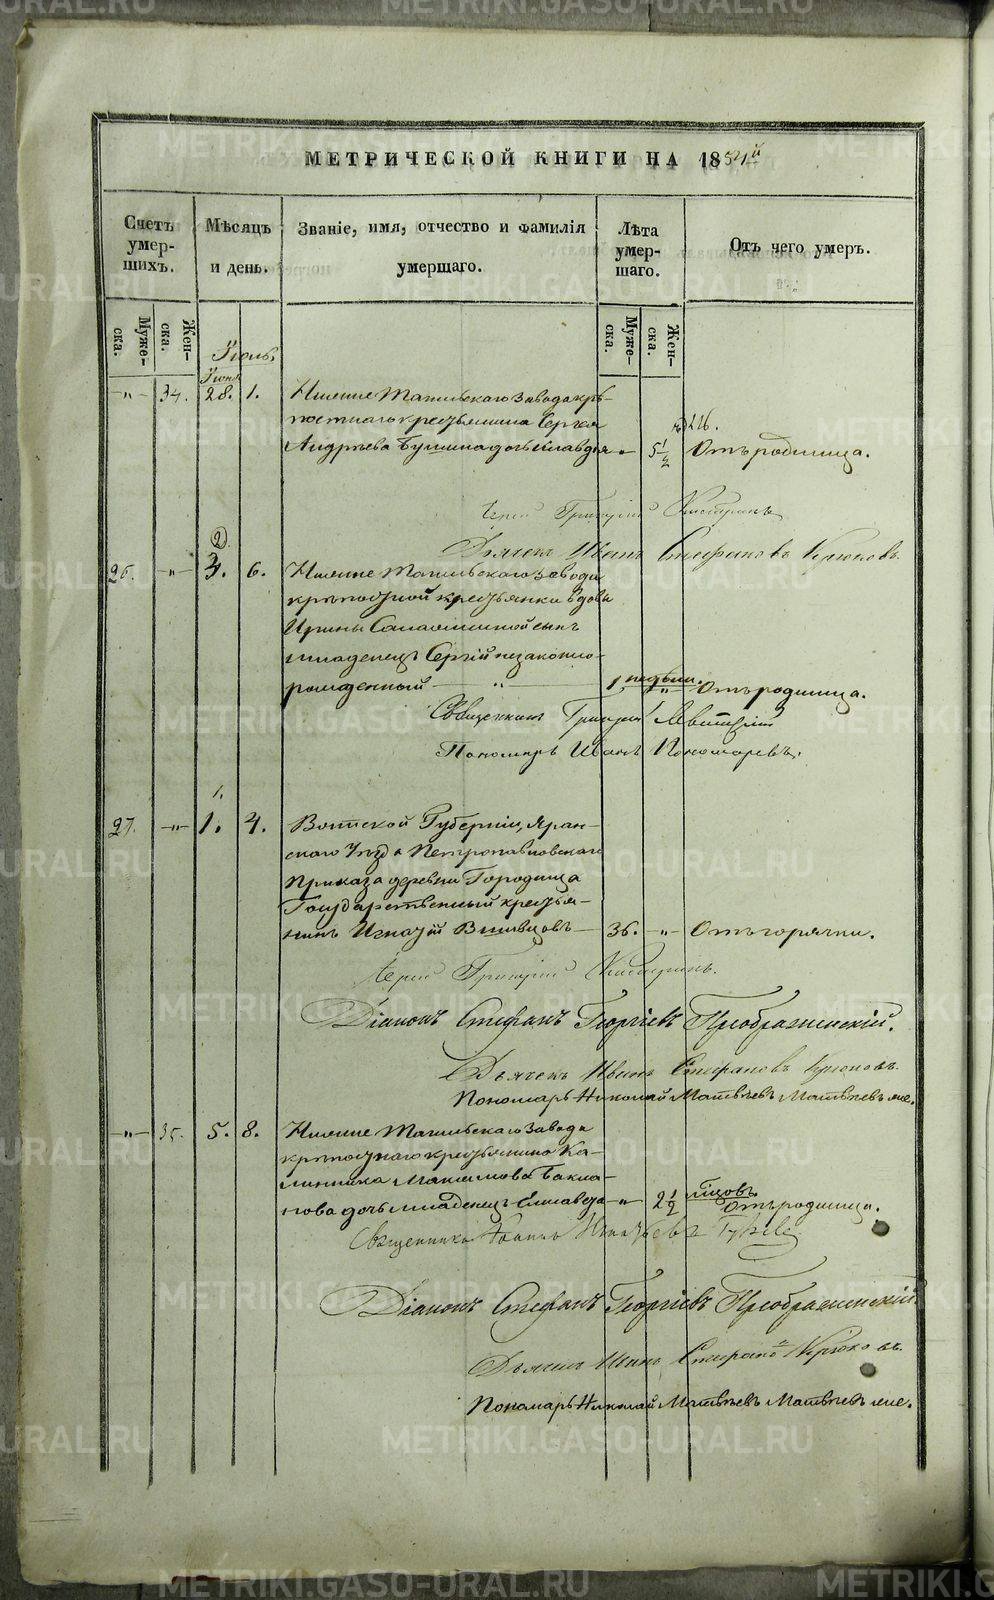 METRIKI.GASO-URAL.RU
МЕТРИЧЕСКОЙ КНИГИ НА 1854й
Счетъ умер-шихъ.
Мѣсяцъ и день.
Званіе, имя, отчество и фамилія умершаго.
Лѣта умер-шаго.
Отъ чего умеръ.
Муже-ска.
Жен-ска.
Муже-ска.
Жен-ска.
Іюль.
Іюня
„ 34. 28. 1. Нижне Тагильскаго Завода крѣ-
постнаго крестьянина Сергѣя
Андрѣева дочь Клавдія „ 5 1/2 Отъ родимца.
Іерей Григорій
Дьячекъ Иванъ Стефановъ Крюковъ.
2
26. „ 3. 6. Нижне Тагильскаго Завода
крѣпостной крестьянки вдовы
Ирины сынъ
младенецъ Сергій незаконно-
рожденный „ 1. недѣли. „ Отъ родимца.
Священникъ Григорій Левитскій
Пономарь Иванъ Пономаревъ.
1.
27. „ 1. 4. Вятской Губерніи, Яран-
скаго Уѣзда Петропавловскаго
Приказа деревни Городища
Государственный крестья-
нинъ Игнатій 36. „ Отъ горячки.
Іерей Григорій
Діаконъ Стефанъ Георгіевъ Преображенскій.
Дьячекъ Иванъ Стефановъ Крюковъ.
Пономарь Николай Матвѣевъ Матвѣевъ же.
„ 35. 5. 8. Нижне Тагильскаго Завода
крѣпостнаго крестьянина Ка-
линника Максимова Бакла-
нова дочь младенецъ Елисавета „ 2 1/2 мѣсцовъ. Отъ родимца.
Священникъ Іоаннъ
Діаконъ Стефанъ Георгіевъ Преображенскій.
Дьячекъ Иванъ Стефановъ Крюковъ.
Пономарь Николай Матвѣевъ Матвѣевъ же.
METRIKI.GASO-URAL.RU